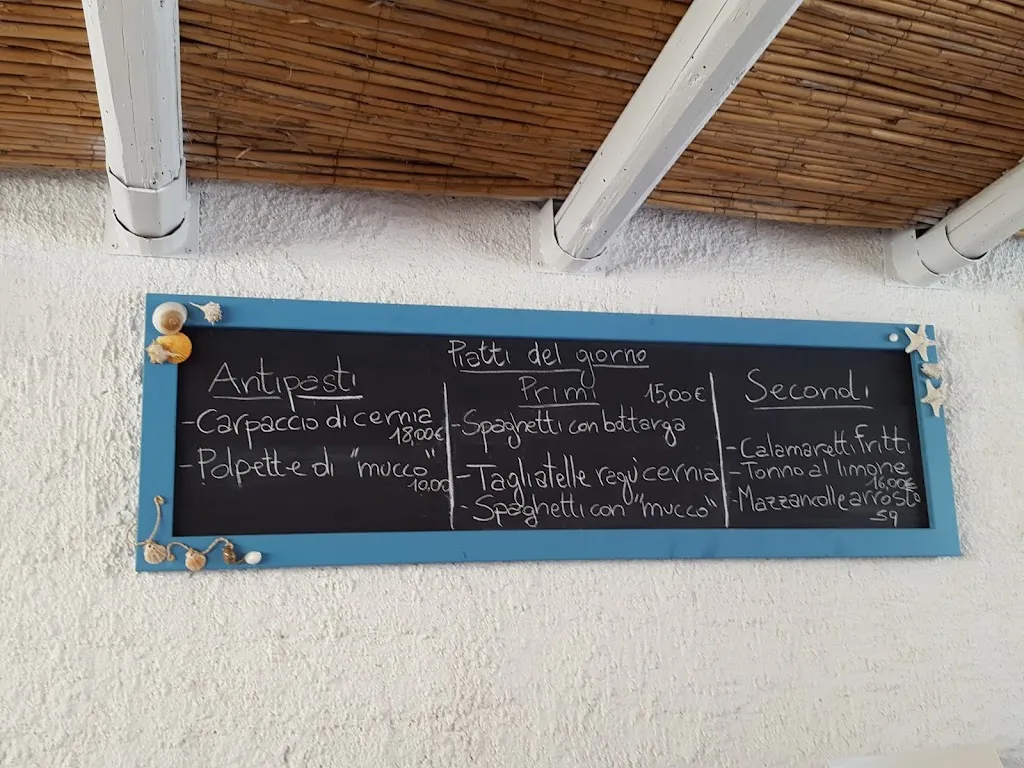 Piatti del giorno
Antipasti
-Carpaccio di cernia
18,00€
-Polpette di "mucco"
10.00
Primi 15,00€
-Spaghetti con bottarga
-Tagliatelle ragu' cernia
-Spaghetti con "mucco"
Secondi
-Calamaretti fritti
-Tonno al limone
16,00€
-Mazzancolle arrosto
s9